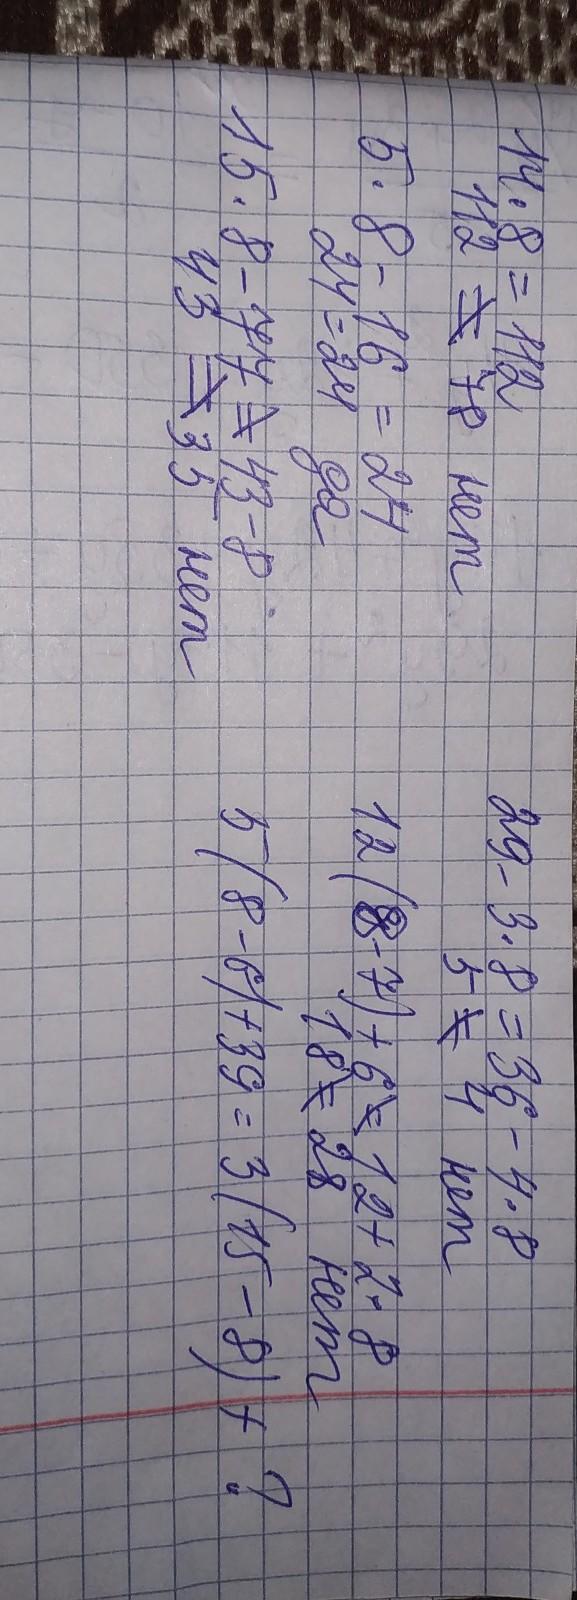 14·8=112
112 ≠ 78 нет
5·8-16=24
24=24 да
15·8-77≠43-8
43 ≠ 35 нет
29-3·8=36-4·8
5 ≠ 4 нет
12(8-7)+6≠12+2·8
18≠28 нет
5(8-6)+39=3(15-8)+ ?